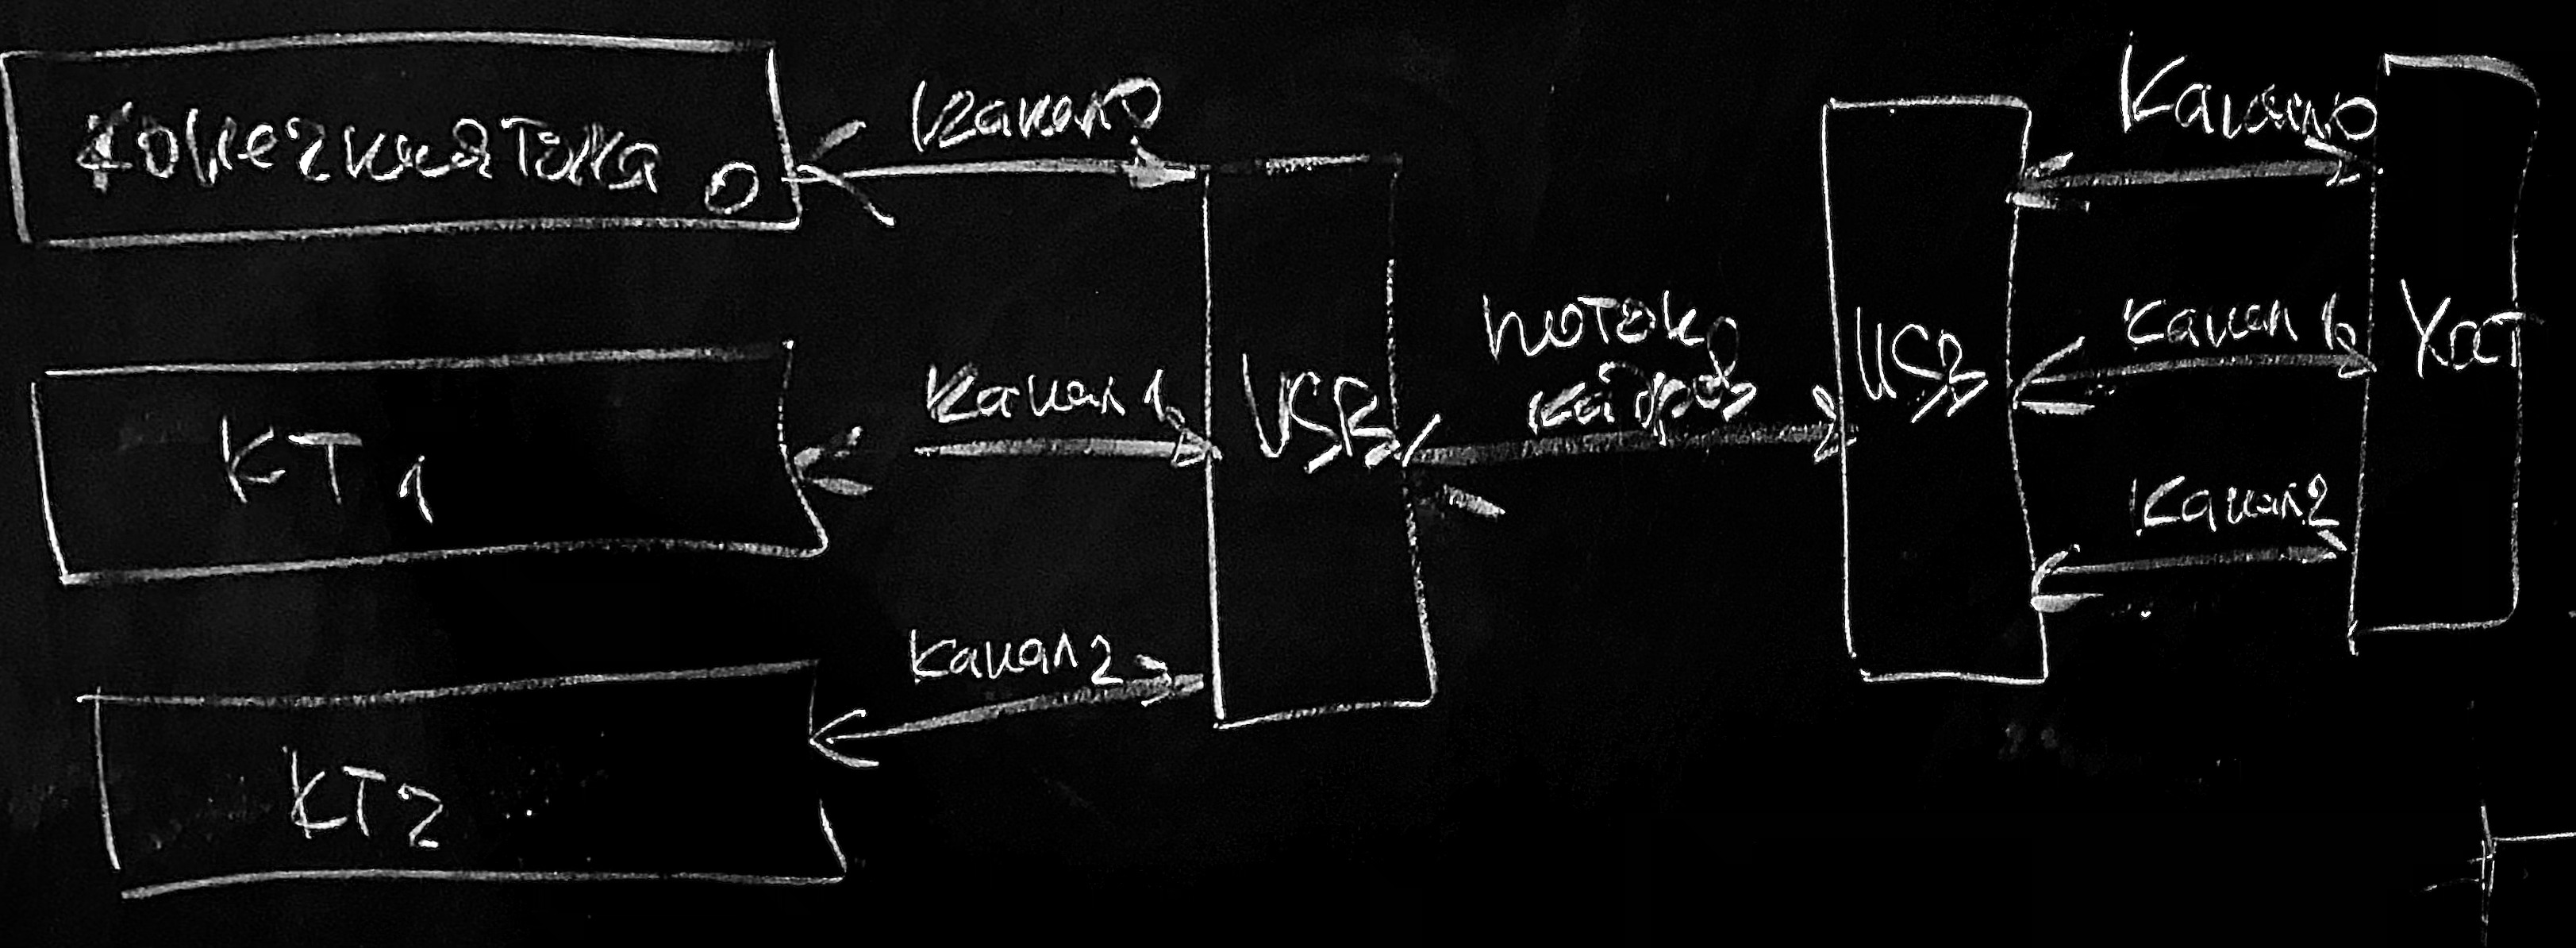 Конечная точка 0
Канал 0
КТ 1
Канал 1
КТ 2
Канал 2
USB
поток
кадров
USB
Канал 0
Канал 1
Канал 2
Хост